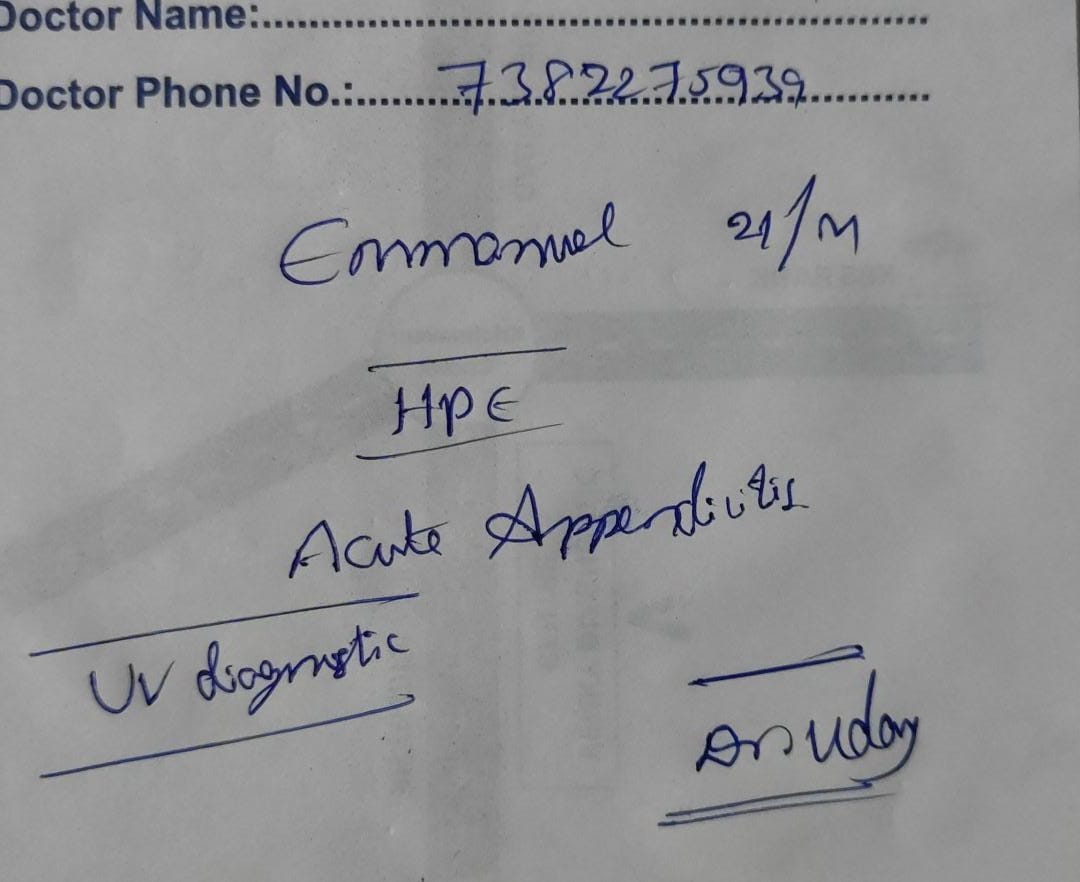 Doctor Name:....................................................
Doctor Phone No.:.........7382275939............
Emmanuel 21/M
HPE
Acute Appendicitis
UV diagnostic
Dr Uday